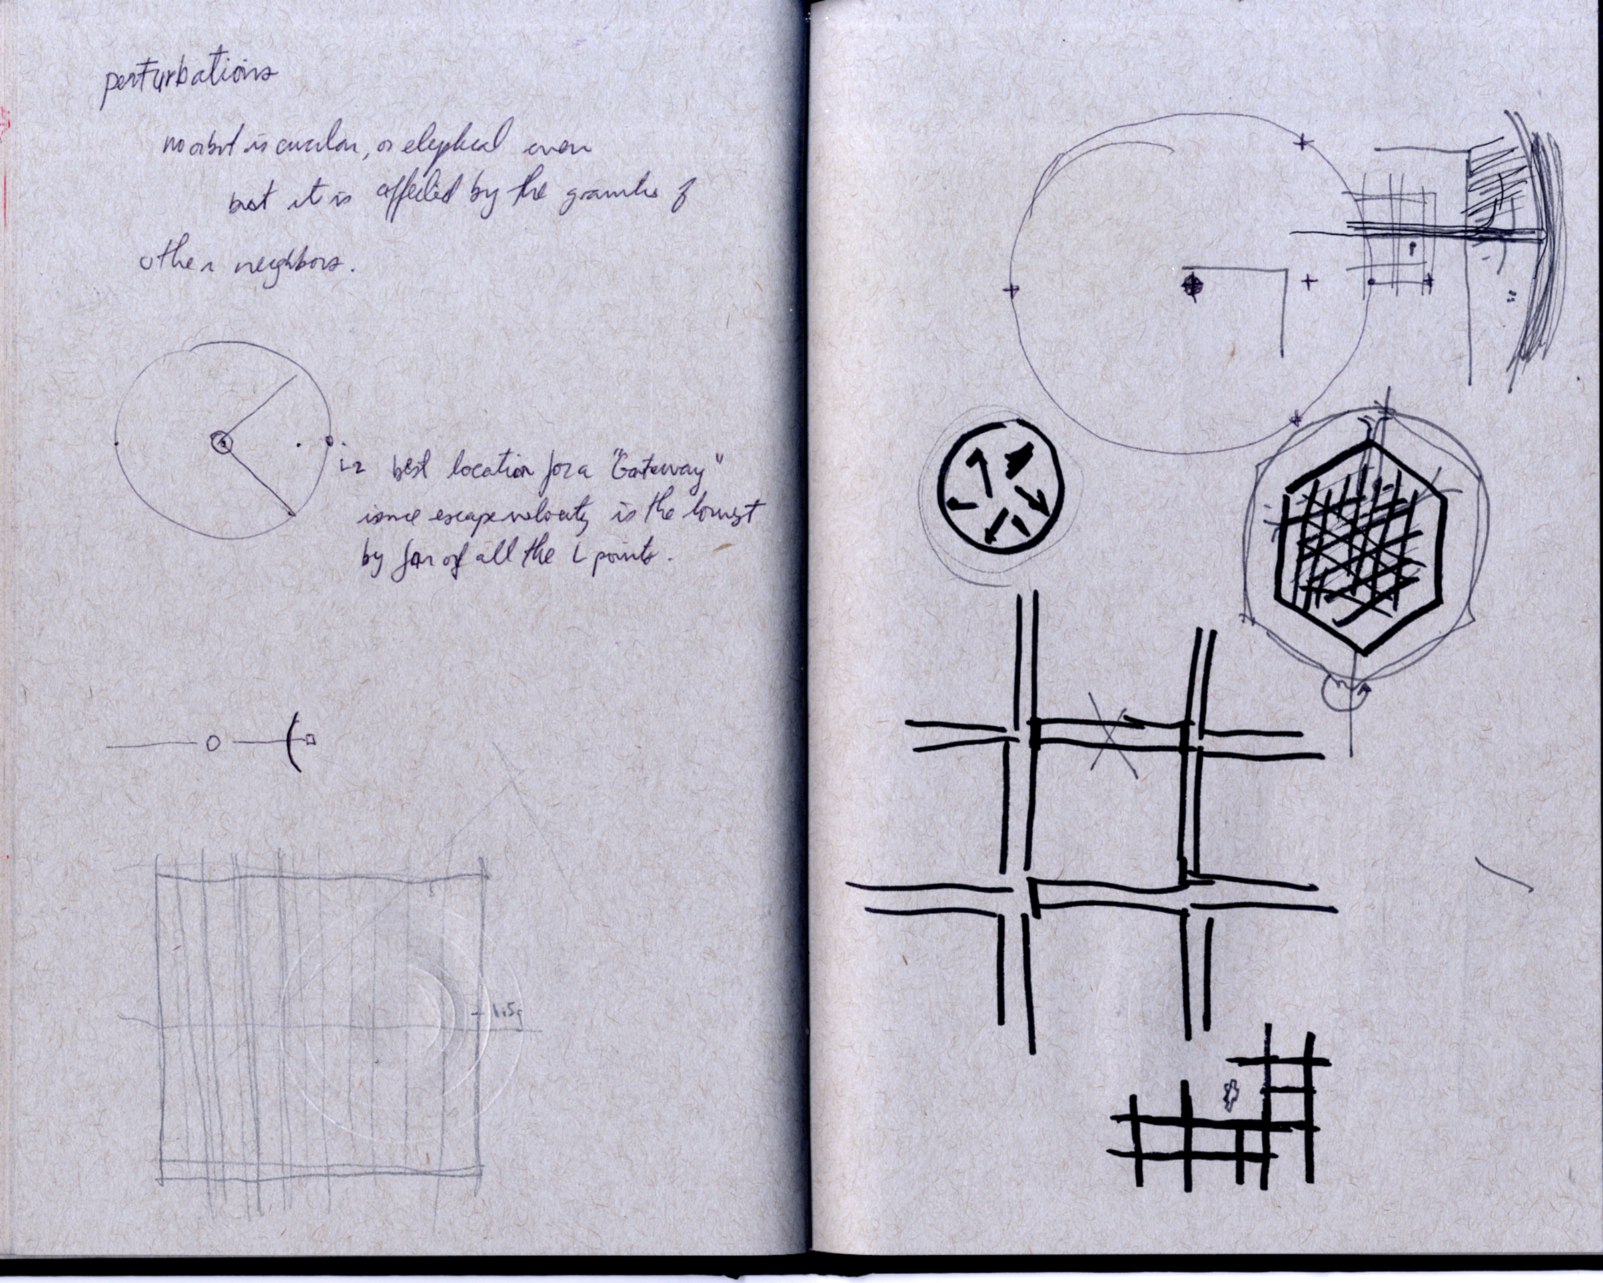 perturbations
no orbit is circular, or eliptical even
but it is affected by the gravities of
other neighbors.
L2 best location for a "Gateway"
since escape velocity is the lowest
by far of all the L points.